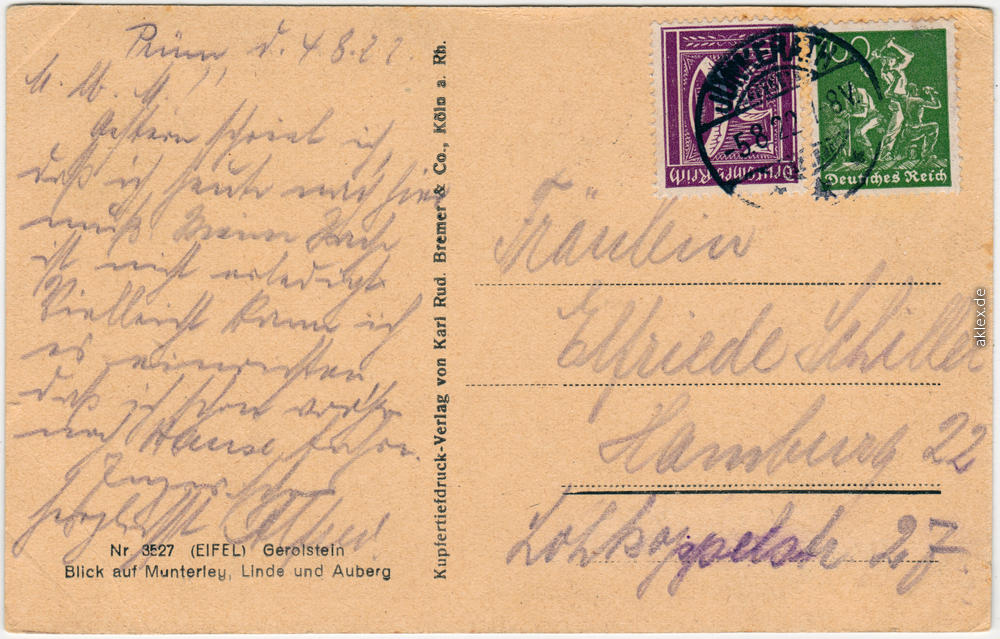 Prüm, d. 4.8.22
M. lb. M.!
Gestern schrieb ich,
daß ich heute nach hier
muß. Meine Sache
ist nicht erledigt.
Vielleicht kann ich
es einrichten
daß ich schon
nach Hause fahre.
herzlichst Alfred
Nr 3527 (EIFEL) Gerolstein
Blick auf Munterley, Linde und Auberg
Kupfertiefdruck-Verlag von Karl Rud. Bremer & Co., Köln a. Rh.
Deutsches Reich
JÜNKERATH
-5.8.22. 8V.
Deutsches Reich
Fräulein
Elfriede Schiller
Hamburg 22
Lohkoppelstr 27
aklex.de